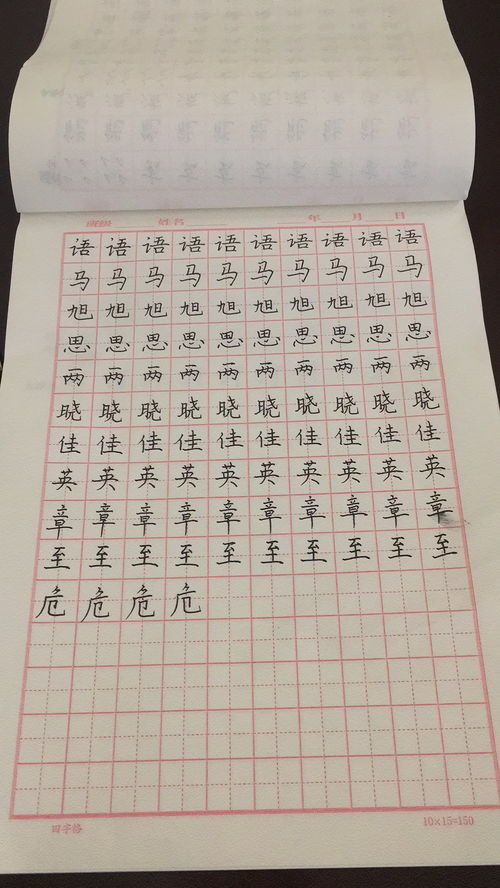 班级 姓名 年 月 日
语 语 语 语 语 语 语 语 语 语
马 马 马 马 马 马 马 马 马 马
旭 旭 旭 旭 旭 旭 旭 旭 旭 旭
思 思 思 思 思 思 思 思 思 思
两 两 两 两 两 两 两 两 两 两
晓 晓 晓 晓 晓 晓 晓 晓 晓 晓
佳 佳 佳 佳 佳 佳 佳 佳 佳 佳
英 英 英 英 英 英 英 英 英 英
章 章 章 章 章 章 章 章 章 章
至 至 至 至 至 至 至 至 至 至
危 危 危 危
田字格 10×15=150